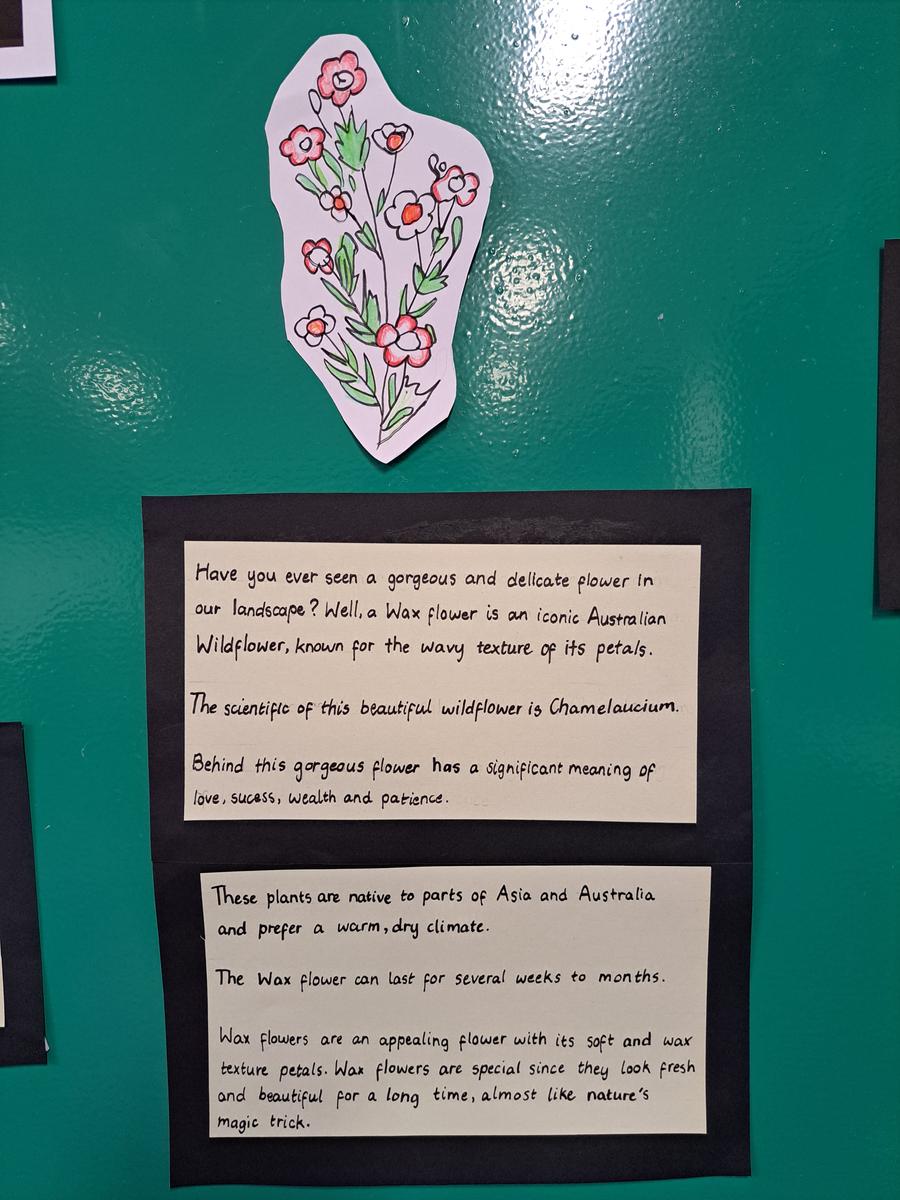 Have you ever seen a gorgeous and delicate flower in
our landscape? Well, a Wax flower is an iconic Australian
Wildflower, known for the wavy texture of its petals.
The scientific of this beautiful wildflower is Chamelaucium.
Behind this gorgeous flower has a significant meaning of
love, sucess, wealth and patience.
These plants are native to parts of Asia and Australia
and prefer a warm, dry climate.
The Wax flower can last for several weeks to months.
Wax flowers are an appealing flower with its soft and wax
texture petals. Wax flowers are special since they look fresh
and beautiful for a long time, almost like nature's
magic trick.